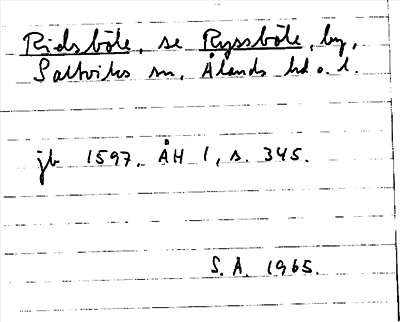 Ridsböle, se Ryssböle, by,
Saltviks sn, Ålands hd o. l.
jb 1597. ÅH 1, s. 345.
S. A. 1965.